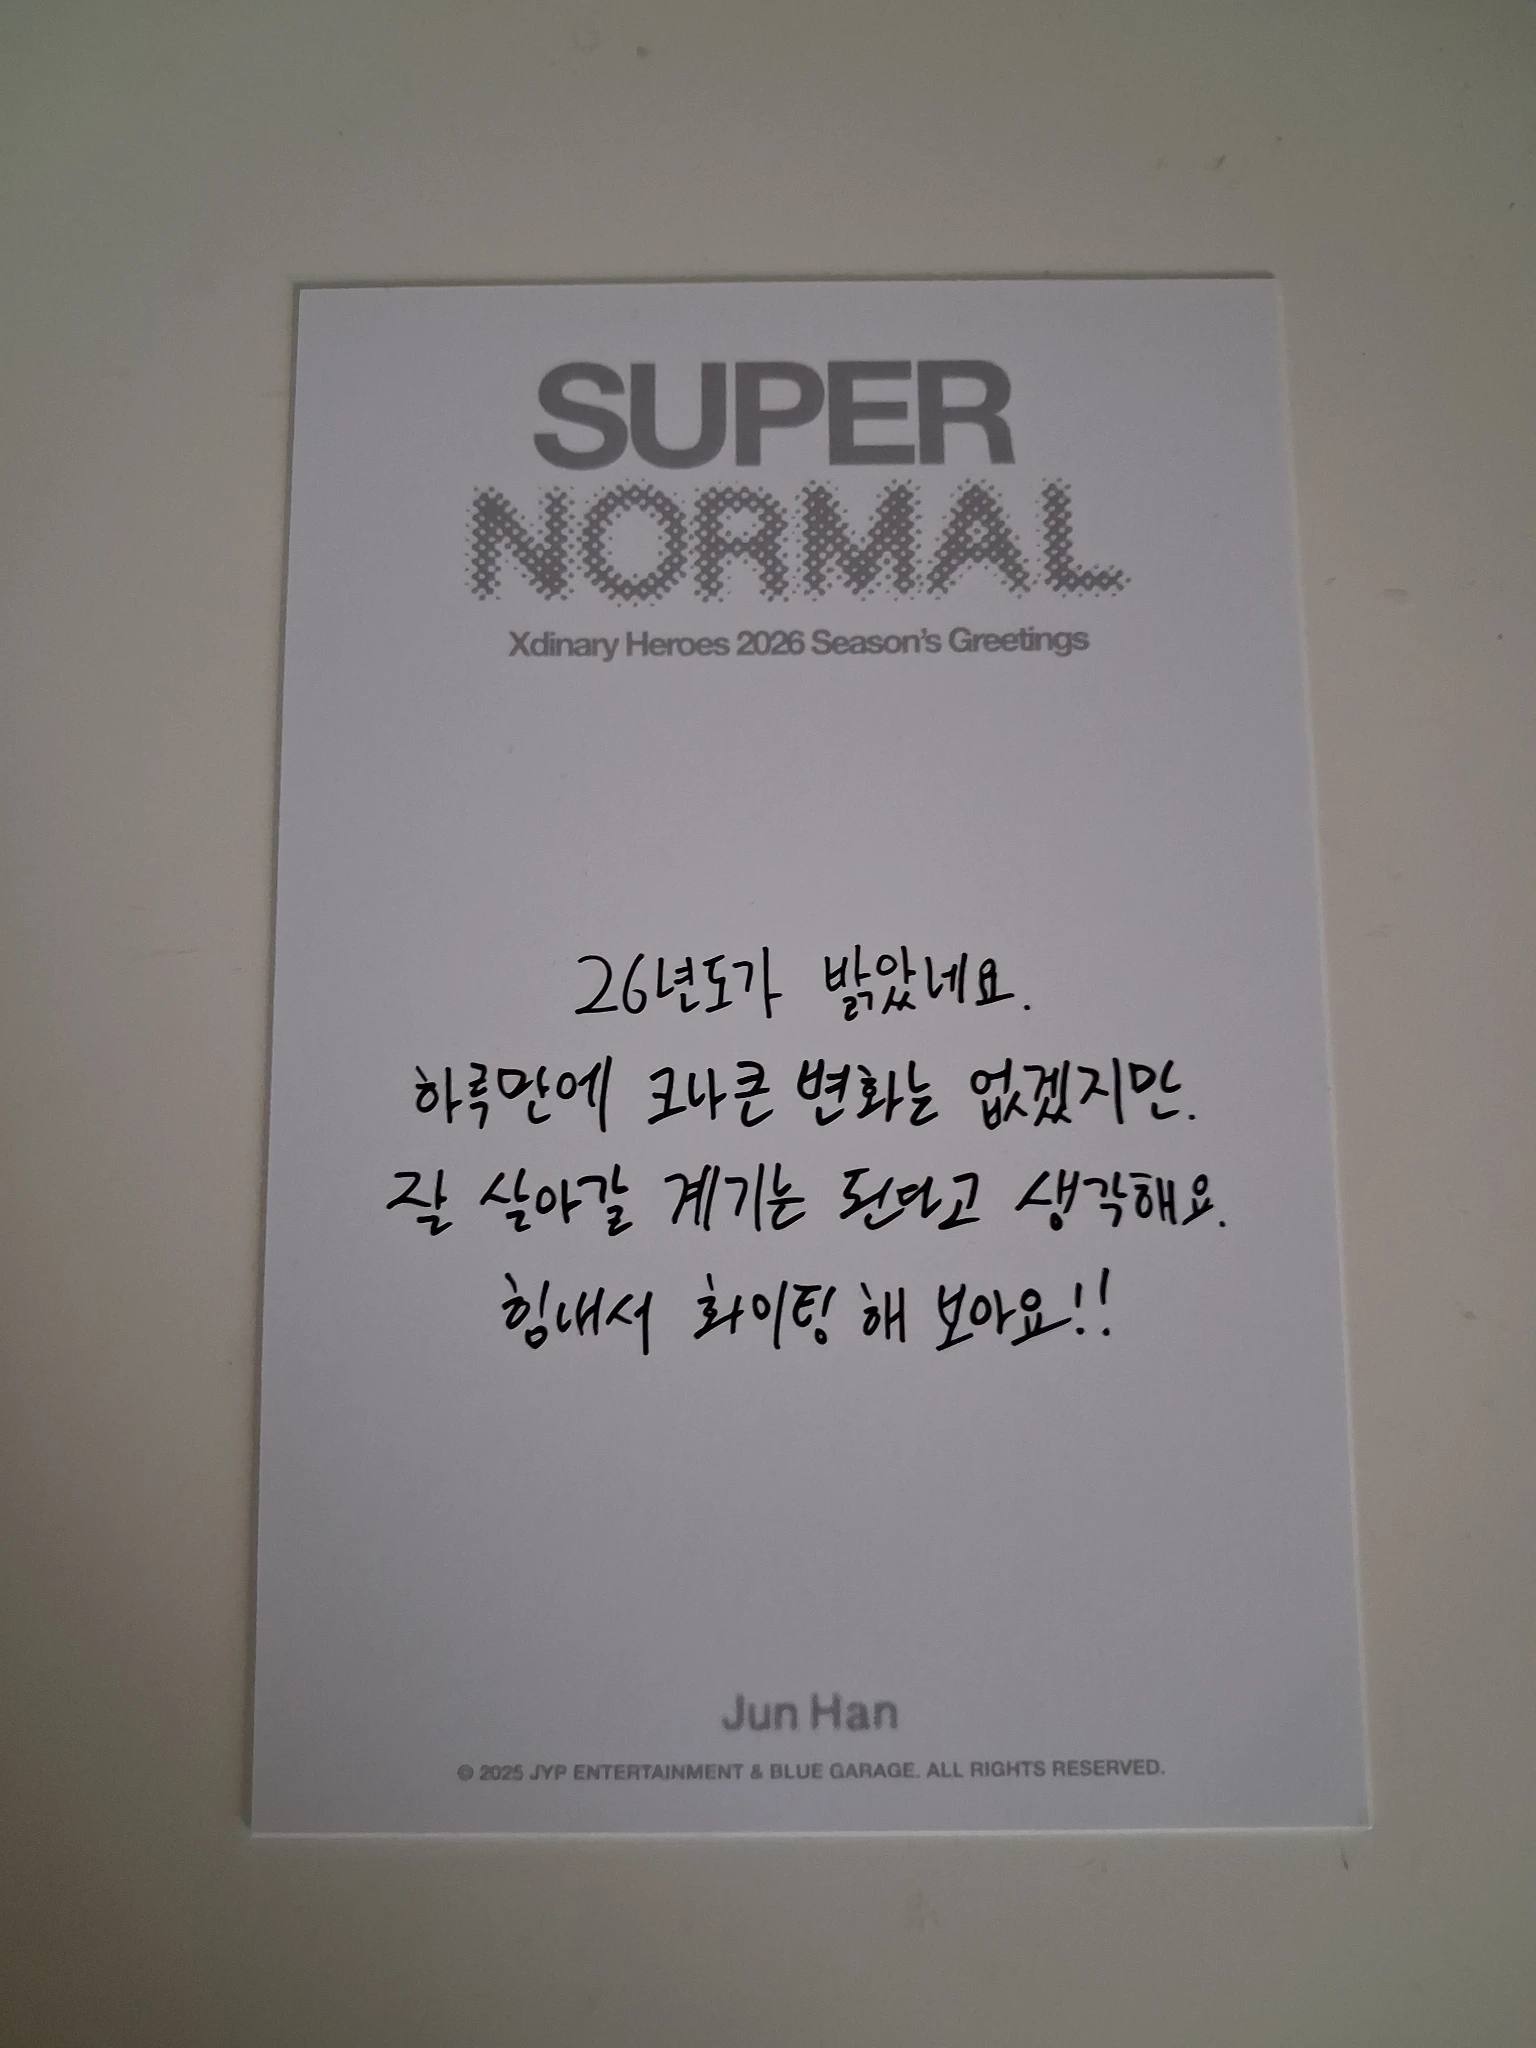 SUPER
NORMAL
Xdinary Heroes 2026 Season's Greetings
26년도가 밝았네요.
하루만에 크나큰 변화는 없겠지만.
잘 살아갈 계기는 된다고 생각해요.
힘내서 화이팅 해 보아요!!
Jun Han
© 2025 JYP ENTERTAINMENT & BLUE GARAGE. ALL RIGHTS RESERVED.